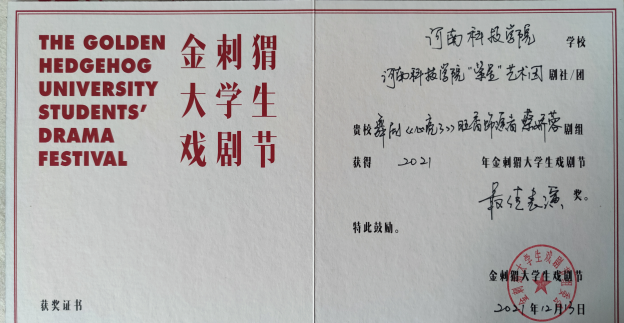 THE GOLDEN
HEDGEHOG
UNIVERSITY
STUDENTS'
DRAMA
FESTIVAL
金刺猬
大学生
戏剧节
获奖证书
河南科技学院 学校
河南科技学院“学星”艺术团 剧社/团
贵校舞剧《心亮了》旺香饰演者蔡妍蓉剧组
获得 2021 年金刺猬大学生戏剧节
最佳表演 奖。
特此鼓励。
金刺猬大学生戏剧节
2021年12月13日